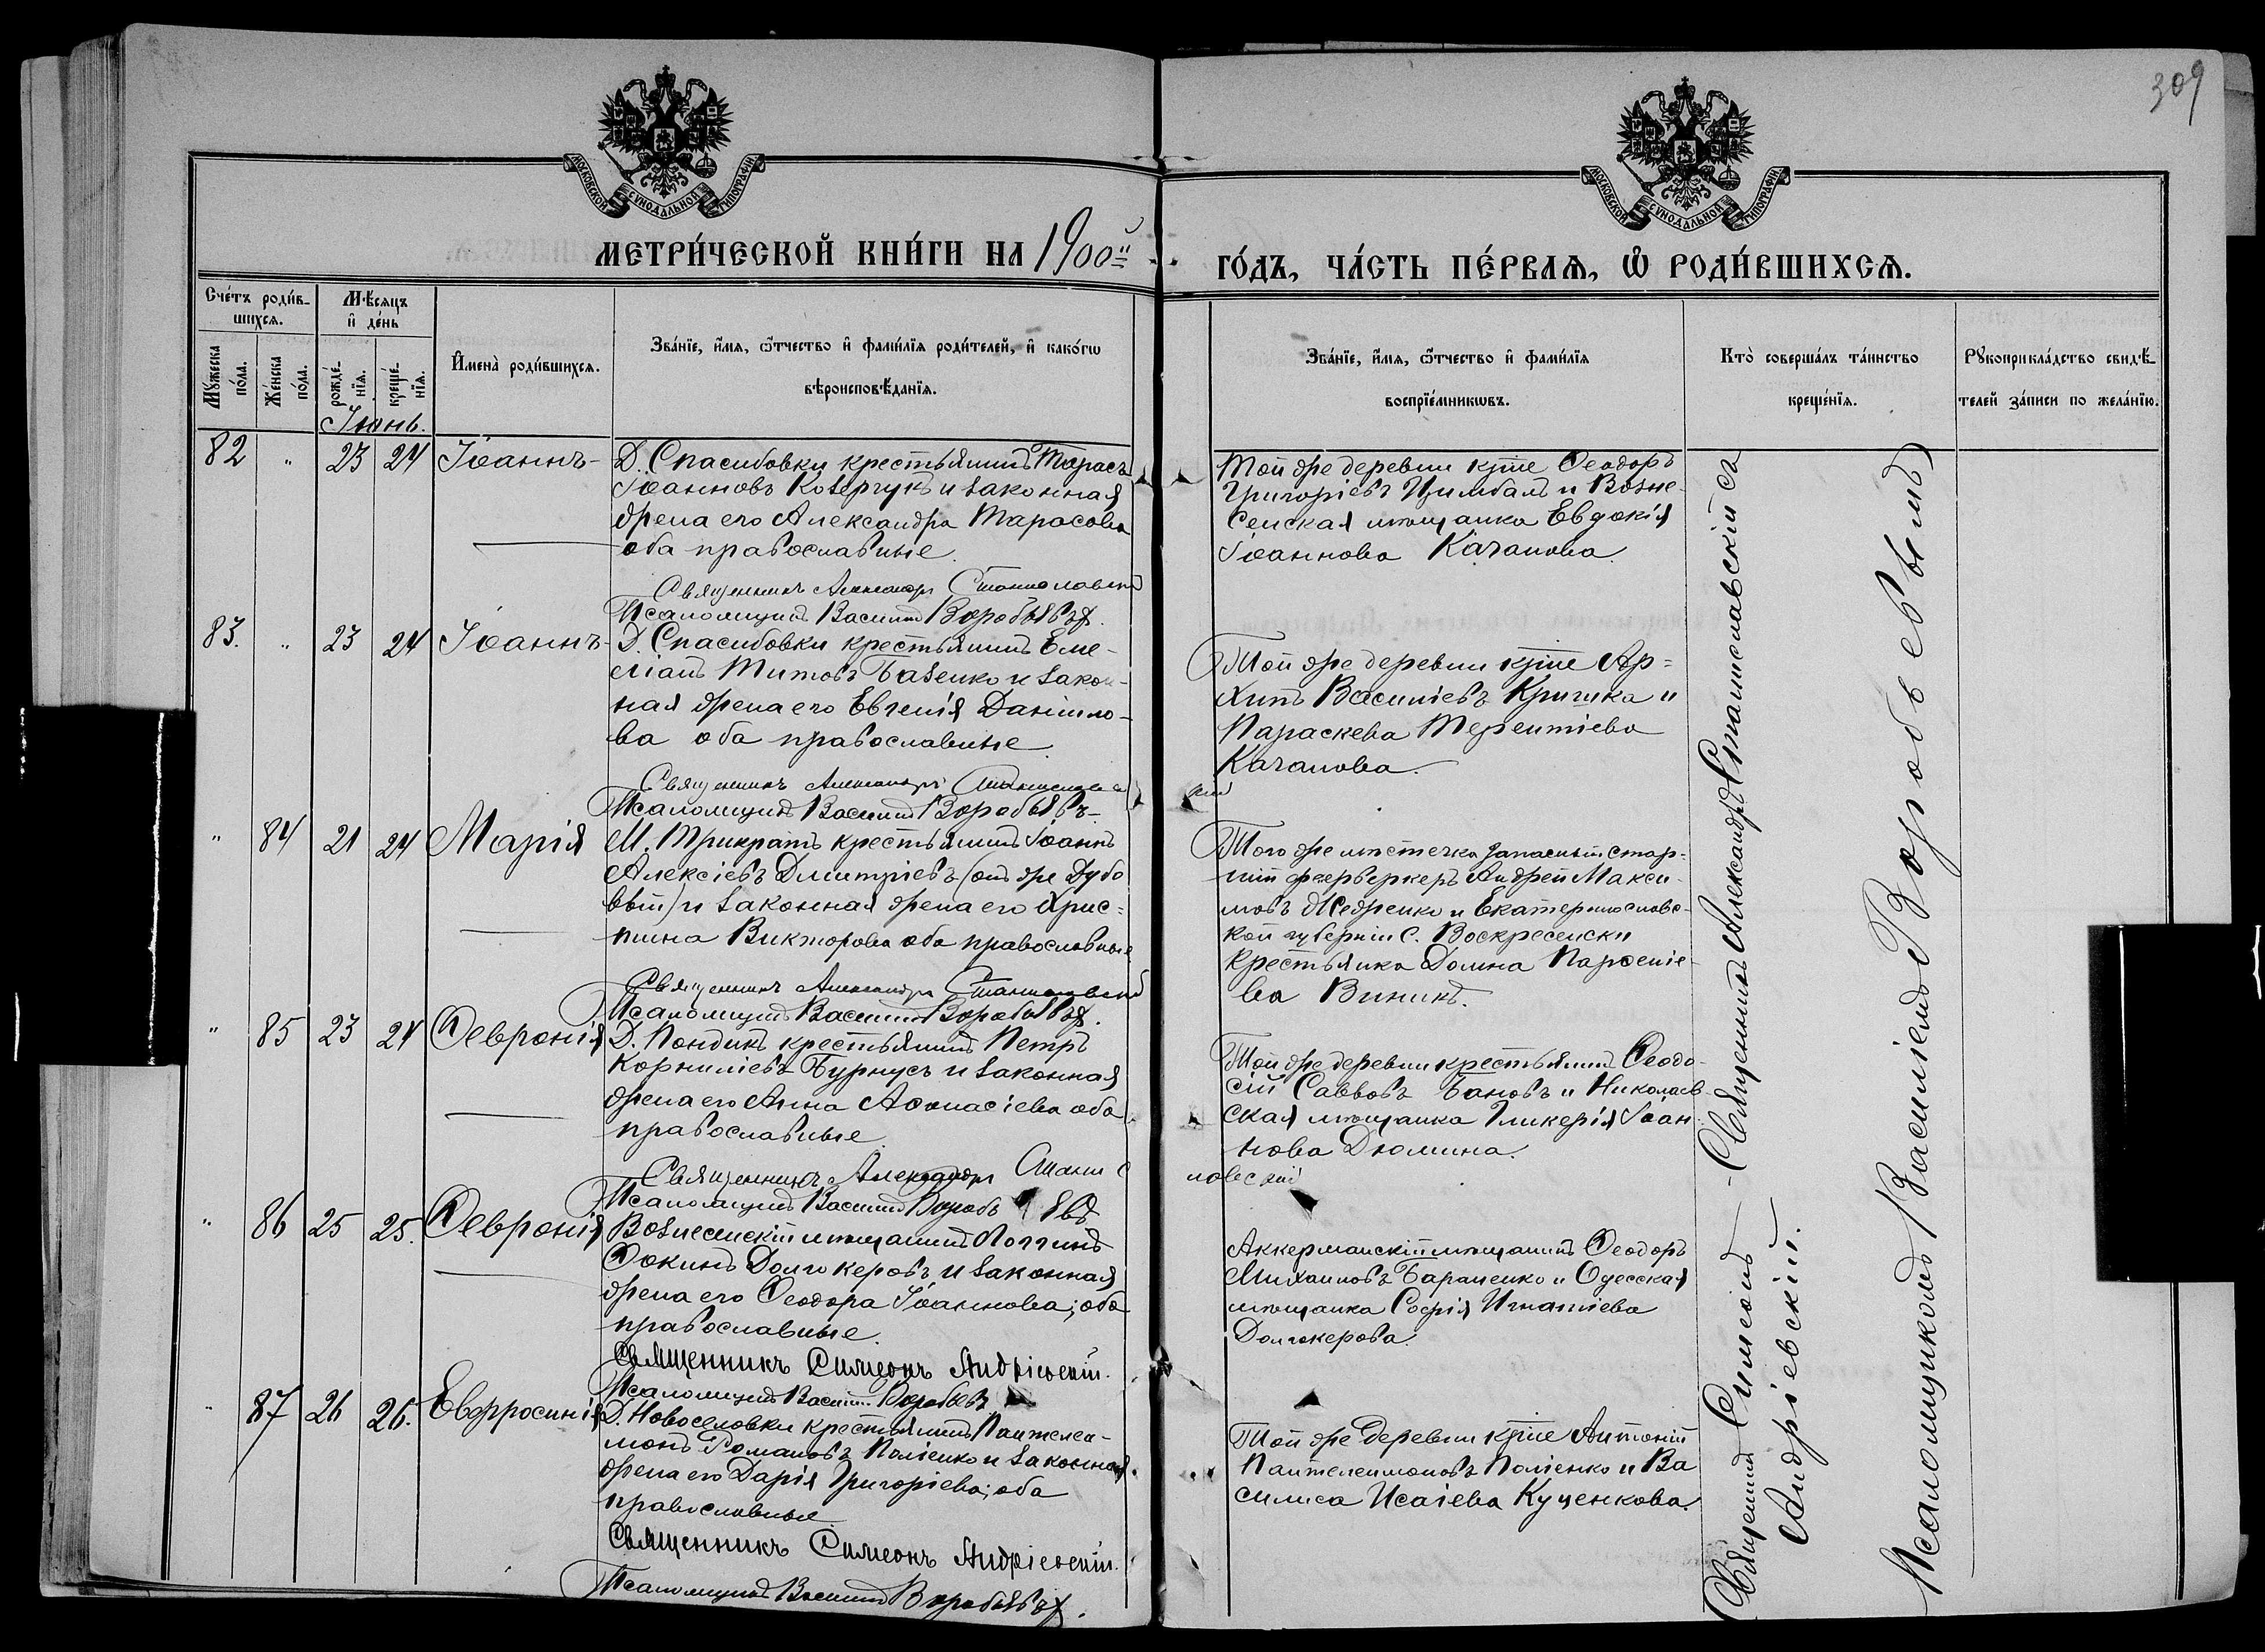 309
МОСКОВСКОЙ СѴНОДАЛЬНОЙ ТИПОГРАФІИ
МОСКОВСКОЙ СѴНОДАЛЬНОЙ ТИПОГРАФІИ
МЕТРИ́ЧЕСКОЙ КНИ́ГИ НА 1900й
ГО́ДЪ, ЧА́СТЬ ПЕ́РВАѦ, Ѡ҆ РОДИ́ВШИХСѦ.
Сче́тъ роди́в-
шихсѧ.
Мѣ́сѧцъ
и҆ де́нь
Мꙋ́жеска
по́ла.
Же́нска
по́ла.
рожде́-
нїѧ.
креще́-
нїѧ.
И҆мена̀ роди́вшихсѧ.
Зва́нїе, и҆́мѧ, ѻ҆́тчество и҆ фами́лїѧ роди́телей, и҆ како́гѡ
вѣроисповѣ́данїѧ.
Зва́нїе, и҆́мѧ, ѻ҆́тчество и҆ фами́лїѧ
воспрїе́мникѡвъ.
Кто̀ соверша́лъ та́инство
креще́нїѧ.
Рꙋкоприкла́дство свидѣ́-
телей за́писи по жела́нїю.
Іюнь.
82 " 23 24 Іоаннъ
Д. Спасибовки крестьянинъ Тарасъ
Іоанновъ Козерчукъ и законная
жена его Александра Тарасова
оба православные.
Священникъ Александръ Станиславскій
Псаломщикъ Василій Воробьевъ.
Той же деревни кр-не Ѳеодоръ
Григоріевъ Цимбалъ и Возне-
сенская мѣщанка Евдокія
Іоаннова Качанова.
83. " 23 24 Іоаннъ
Д. Спасибовки крестьянинъ Еме-
ліанъ Титовъ Базенко и закон-
ная жена его Евгенія Даніило-
ва оба православные.
Священникъ Александръ Станиславс
кій
Псаломщикъ Василій Воробьевъ.
Той же деревни кр-не Ар-
хипъ Василіевъ Кришка и
Параскева Терентіева
Качанова.
" 84 21 24 Марія
М. Трикратъ крестьянинъ Іоаннъ
Алексіевъ Димитріевъ (онъ же Дубо
вый) и законная жена его Хрис-
тина Викторова оба православные
Священникъ Александръ Станиславскій
Псаломщикъ Василій Воробьевъ.
Того же мѣстечка запасный стар-
шій фейерверкеръ Андрей Макси-
мовъ Жедренко и Екатеринославс-
кой губерніи с. Воскресенски
крестьянка Домна Парѳеніе-
ва Виникъ.
" 85 23 24 Ѳевронія
Д. Пондикъ крестьянинъ Петръ
Корниліевъ Бурнусъ и законная
жена его Анна Аѳанасіева оба
православные.
Священникъ Александръ Станис
лавскій
Псаломщикъ Василій Воробьевъ
Той же деревни крестьянинъ Ѳеодо-
сій Саввовъ Бановъ и Николаев-
ская мѣщанка Гликерія Іоан-
нова Дюмина.
" 86 25 25. Ѳевронія
Вознесенскій мѣщанинъ Логгинъ
Ѳокинъ Долгокеровъ и законная
жена его Ѳеодора Іоаннова; оба
православные.
Священникъ Симеонъ Андріевскій.
Псаломщикъ Василій Воробьевъ
Аккерманскій мѣщанинъ Ѳеодоръ
Михаиловъ Бараненко и Одесская
мѣщанка Софія Игнатіева
Долгокерова.
" 87 26 26. Евфросинія
Д. Новоселовки крестьянинъ Пантелеи-
монъ Романовъ Поліенко и законная
жена его Дарія Григоріева; оба
православные.
Священникъ Симеонъ Андріевскій.
Псаломщикъ Василій Воробьевъ.
Той же деревни кр-не Антоній
Пантелеимоновъ Поліенко и Ва
силиса Исаіева Куценкова.
Священникъ Симеонъ Андріевскій.
Священникъ Александръ Станиславскій съ
Псаломщикомъ Василіемъ Воробьевымъ